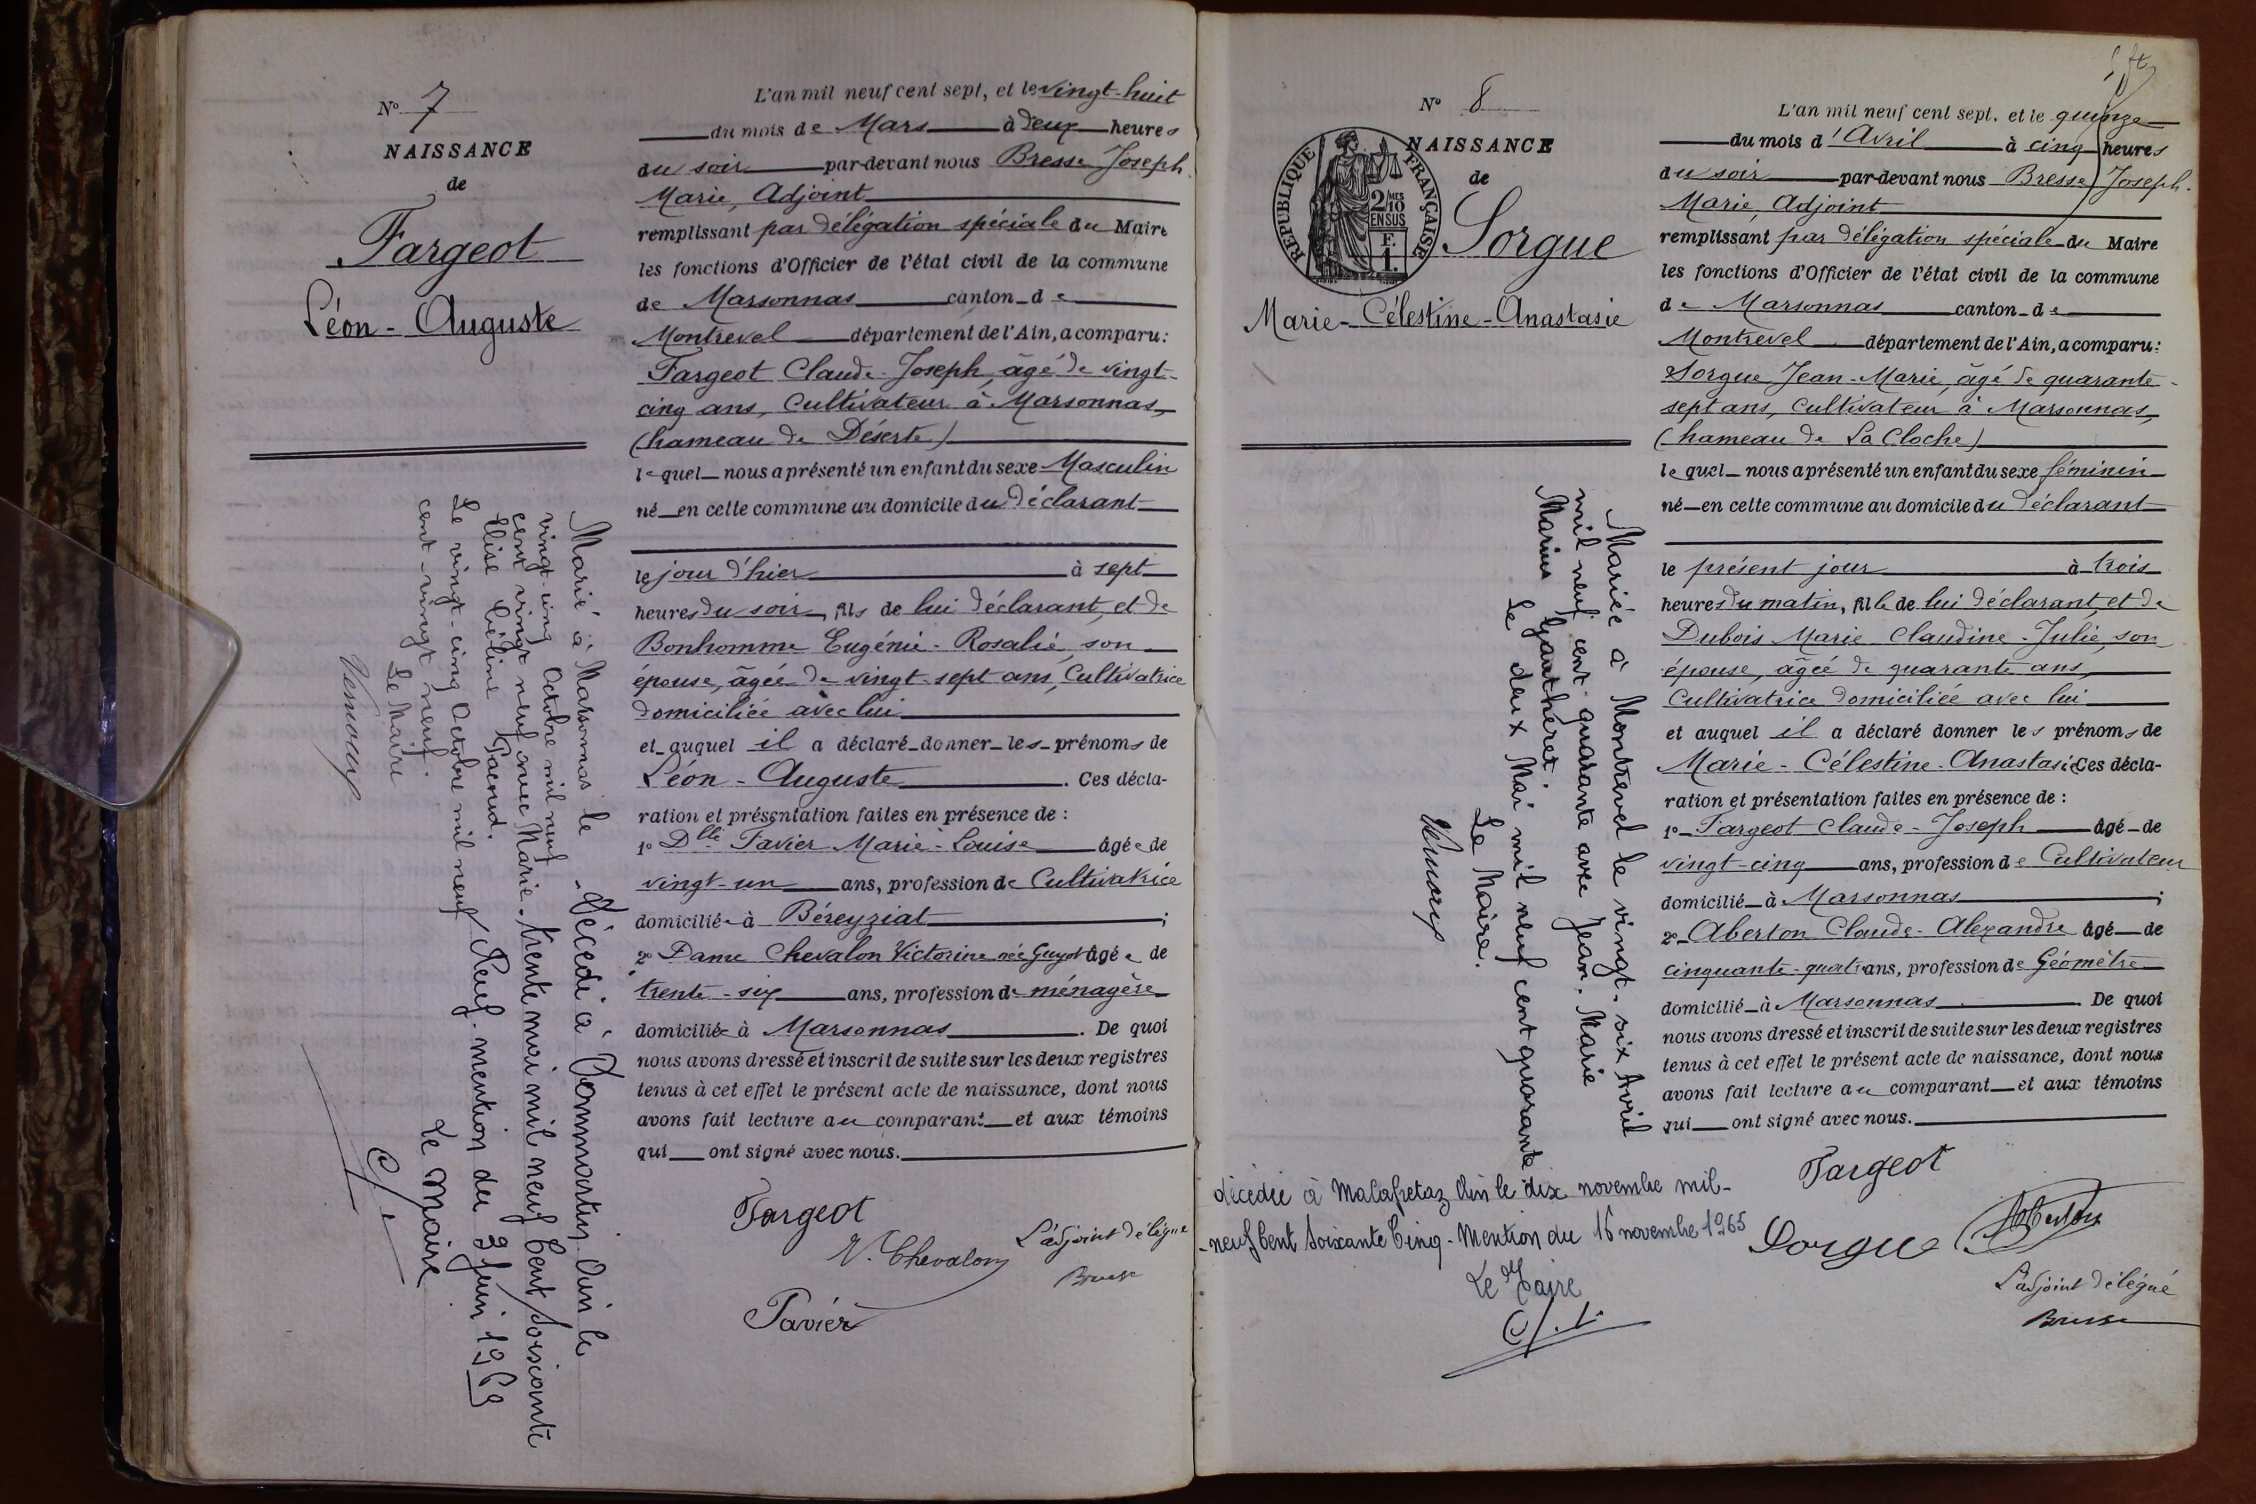 N° 7
NAISSANCE
de
Fargeot
Léon - Auguste
Marié à Marsonnas le
vingt-cinq Octobre mil neuf
cent vingt neuf avec Marie
Elise Céline
Le vingt-cinq Octobre mil neuf
cent-vingt neuf.
Le Maire
- Décédé à Dommartin Ain le
trente mai mil neuf Cent soixante
Neuf - mention du 3 Juin 1969
Le Maire
L'an mil neuf cent sept, et le vingt-huit
du mois de Mars à deux heures
du soir par-devant nous Bresse Joseph
Marie, Adjoint
remplissant par délégation spéciale du Maire
les fonctions d'Officier de l'état civil de la commune
de Marsonnas canton de
Montrevel département de l'Ain, a comparu:
Fargeot Claude-Joseph, âgé de vingt-
cinq ans, Cultivateur à Marsonnas,
(hameau de Déserte)
lequel nous a présenté un enfant du sexe Masculin
né en cette commune au domicile du déclarant
le jour d'hier à sept
heures du soir, fils de lui déclarant, et de
Bonhomme Eugénie-Rosalie, son
épouse, âgée de vingt-sept ans, Cultivatrice
domiciliée avec lui
et auquel il a déclaré donner les prénoms de
Léon - Auguste. Ces décla-
ration et présentation faites en présence de :
1° Dlle Favier Marie-Louise âgée de
vingt-un ans, profession de Cultivatrice
domiciliée à Béreyziat ;
2° Dame Chevalon Victorine née Guyot âgée de
trente-six ans, profession de ménagère
domiciliée à Marsonnas. De quoi
nous avons dressé et inscrit de suite sur les deux registres
tenus à cet effet le présent acte de naissance, dont nous
avons fait lecture au comparant et aux témoins
qui ont signé avec nous.
Fargeot
V. Chevalon
L'adjoint délégué
Bresse
Favier
N° 8
NAISSANCE
de
REPUBLIQUE FRANÇAISE
2/10 MES
EN SUS
F.
1.
Sorgue
Marie-Célestine-Anastasie
Mariée à Montrevel le vingt-six Avril
mil neuf cent quarante avec Jean-Marie
Marius
Le deux Mai mil neuf cent quarante
Le Maire.
décédée à Malafretaz Ain le dix novembre mil-
-neuf Cent Soixante Cinq - Mention du 16 novembre 1965
Le Maire
L'an mil neuf cent sept, et le quinze
du mois d'Avril à cinq heures
du soir par-devant nous Bresse Joseph-
Marie, Adjoint
remplissant par délégation spéciale du Maire
les fonctions d'Officier de l'état civil de la commune
de Marsonnas canton de
Montrevel département de l'Ain, a comparu:
Sorgue Jean-Marie, âgé de quarante-
sept ans, Cultivateur à Marsonnas,
(hameau de La Cloche)
lequel nous a présenté un enfant du sexe féminin
né en cette commune au domicile du déclarant
le présent jour à trois
heures du matin, fille de lui déclarant, et de
Dubois Marie-Claudine-Julie, son
épouse, âgée de quarante ans,
Cultivatrice domiciliée avec lui
et auquel il a déclaré donner les prénoms de
Marie-Célestine-Anastasie Ces décla-
ration et présentation faites en présence de :
1° Fargeot Claude-Joseph âgé de
vingt-cinq ans, profession de Cultivateur
domicilié à Marsonnas ;
2° Aberton Claude-Alexandre âgé de
cinquante-quatre ans, profession de Géomètre
domicilié à Marsonnas. De quoi
nous avons dressé et inscrit de suite sur les deux registres
tenus à cet effet le présent acte de naissance, dont nous
avons fait lecture au comparant et aux témoins
qui ont signé avec nous.
Fargeot
Sorgue
Aberton
L'adjoint délégué
Bresse